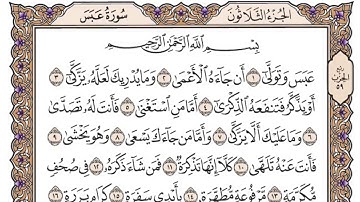 سُورَةُ عَبَسَ
الجُزْءُ الثَّلَاثُونَ
بِسْمِ اللَّهِ الرَّحْمَٰنِ الرَّحِيمِ
عَبَسَ وَتَوَلَّىٰ ١ أَن جَاءَهُ الْأَعْمَىٰ ٢ وَمَا يُدْرِيكَ لَعَلَّهُ يَزَّكَّىٰ ٣
أَوْ يَذَّكَّرُ فَتَنفَعَهُ الذِّكْرَىٰ ٤ أَمَّا مَنِ اسْتَغْنَىٰ ٥ فَأَنتَ لَهُ تَصَدَّىٰ
٦ وَمَا عَلَيْكَ أَلَّا يَزَّكَّىٰ ٧ وَأَمَّا مَن جَاءَكَ يَسْعَىٰ ٨ وَهُوَ يَخْشَىٰ ٩
فَأَنتَ عَنْهُ تَلَهَّىٰ ١٠ كَلَّا إِنَّهَا تَذْكِرَةٌ ١١ فَمَن شَاءَ ذَكَرَهُ ١٢ فِي صُحُفٍ
مُّكَرَّمَةٍ ١٣ مَّرْفُوعَةٍ مُّطَهَّرَةٍ ١٤ بِأَيْدِي سَفَرَةٍ ١٥ كِرَامٍ بَرَرَةٍ ١٦
ربع
الحزب
٥٩